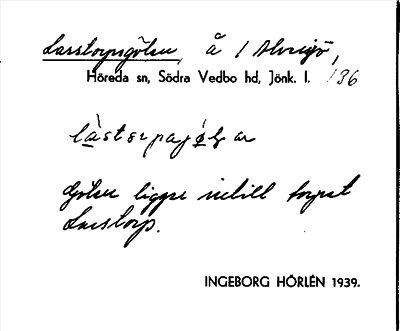 Larstorpsgölen, å / Alvesjö,
Höreda sn, Södra Vedbo hd, Jönk. l. 136
Gölen ligger intill torpet
Larstorp.
INGEBORG HÖRLÉN 1939.